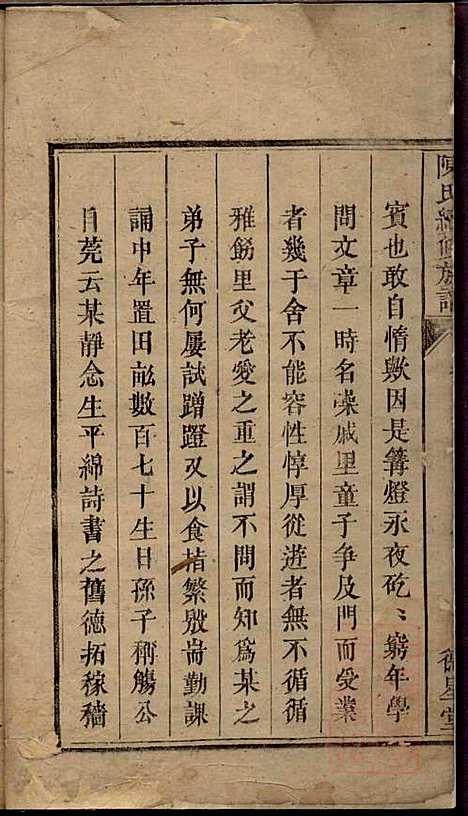 陳氏續修族譜
賓也敢自惰歟因是篝燈永夜矻〻窮年學
問文章一時名喿戚里童子争及門而受業
者幾于舍不能容性惇厚從遊者無不循循
雅飭里父老愛之重之謂不問而知爲某之
弟子無何屢試蹭蹬又以食指繁殷耑勤課
誦中年置田畆數百七十生日孫子稱觴公
目莞云某靜念生平綿詩書之舊德拓稼穡
德星堂